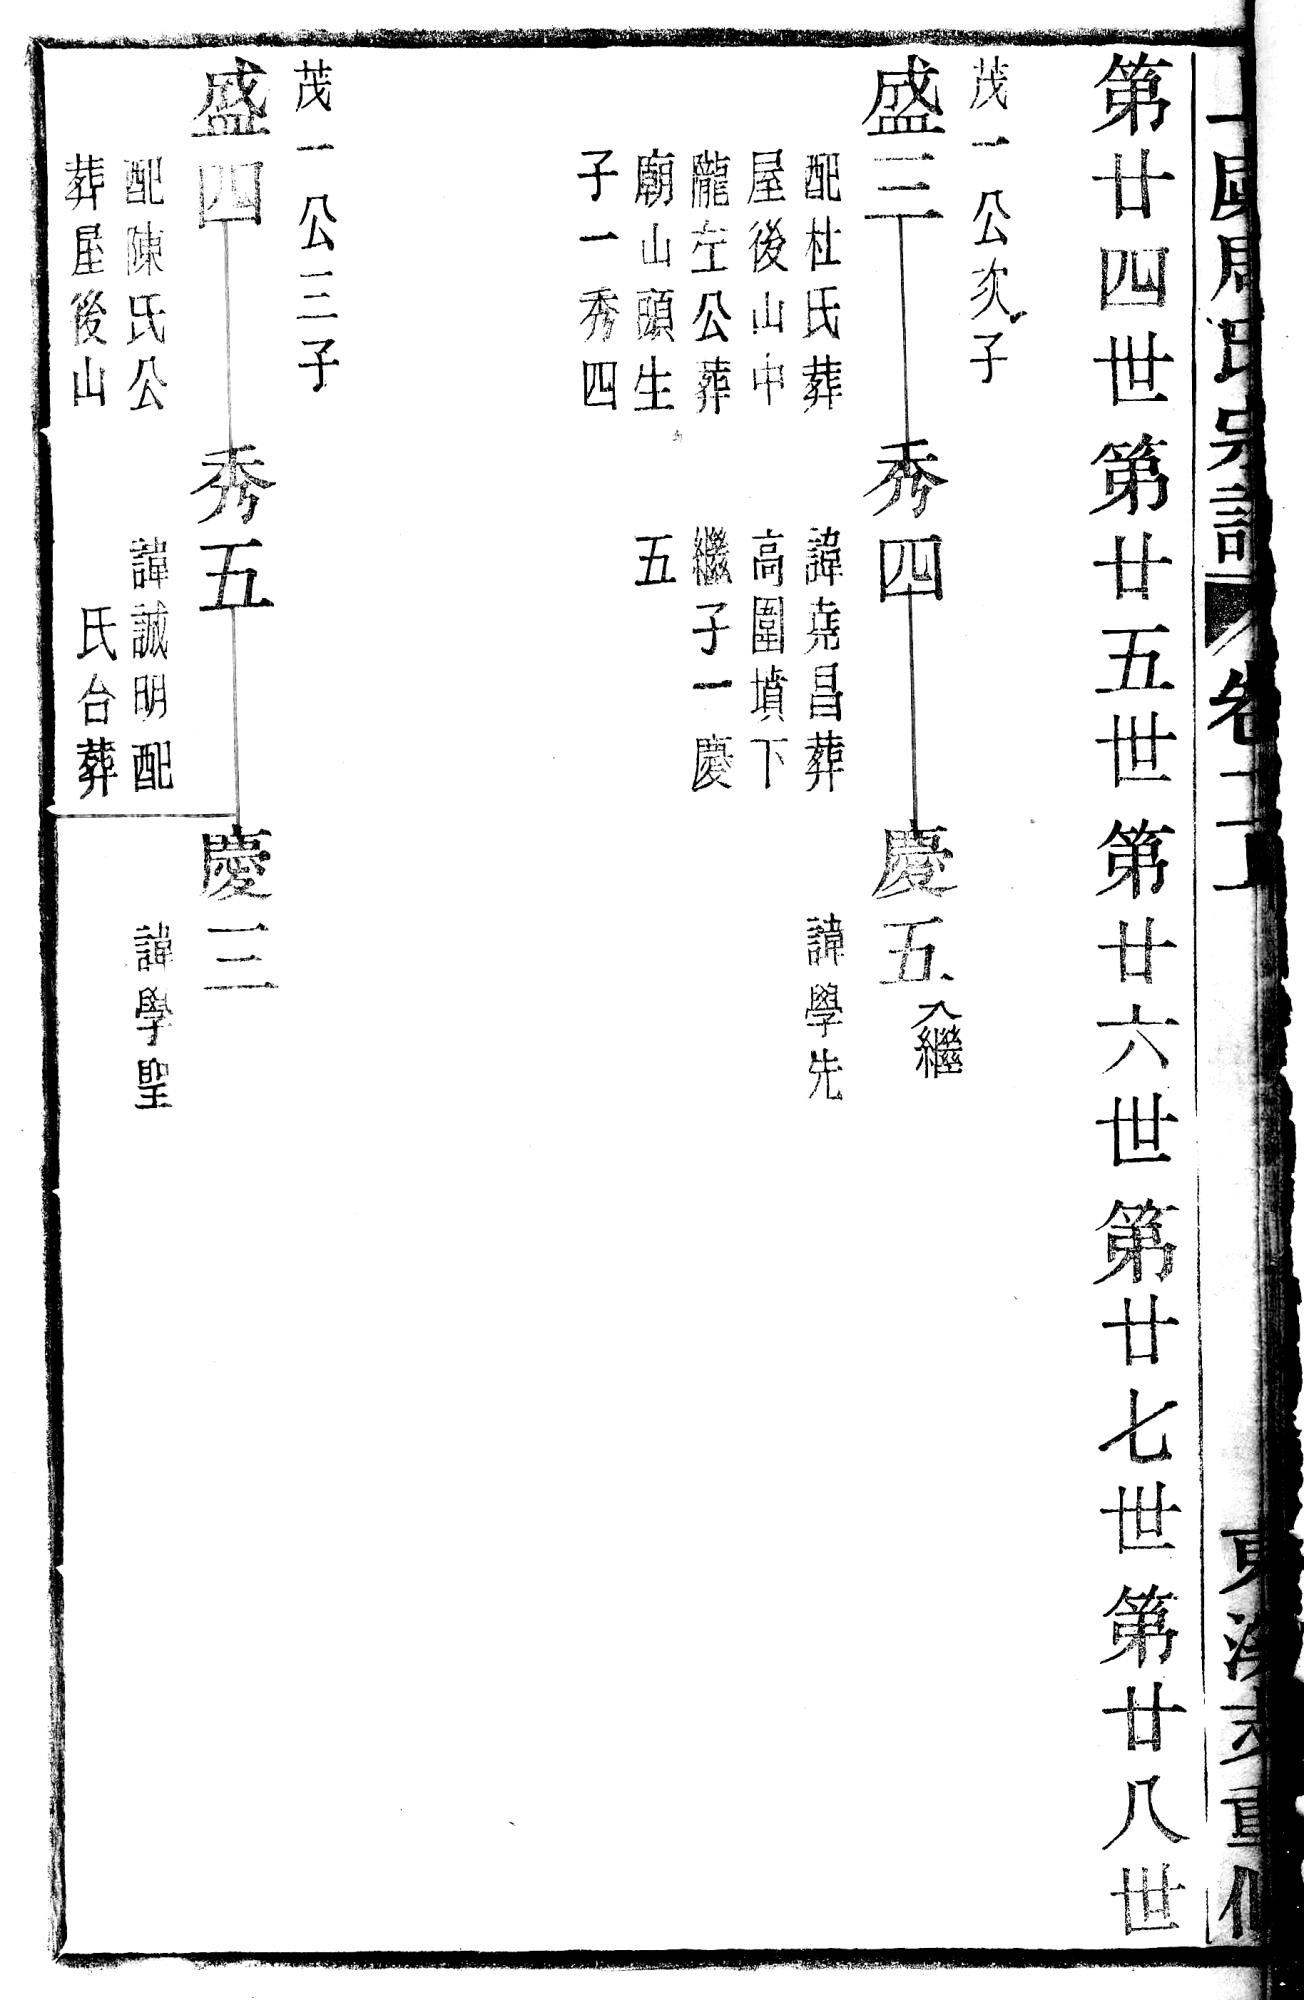 周氏宗譜 卷十
第廿四世 第廿五世 第廿六世 第廿七世 第廿八世
茂一公次子
盛三 秀四 慶五入繼
配杜氏葬
屋後山中
隴左公葬
廟山頭生
子一秀四
諱堯昌葬
高圍墳下
繼子一慶
五
諱學先
茂一公三子
盛四 秀五 慶三
配陳氏公
葬屋後山
諱誠明配
氏台葬
諱學聖